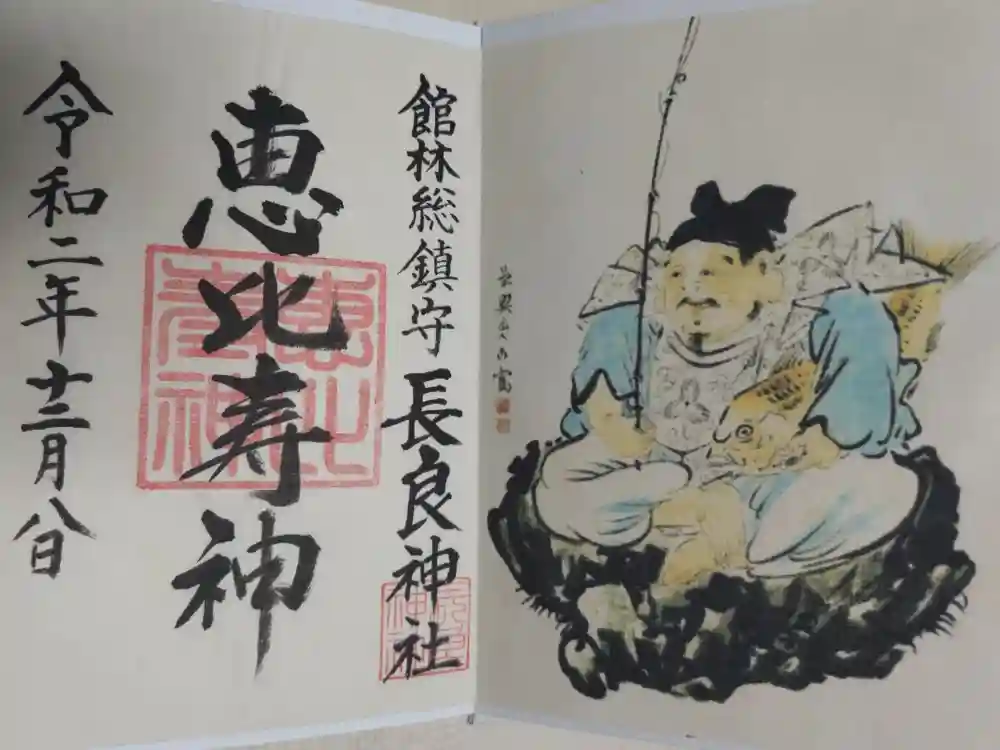 館林総鎮守 長良神社
恵比寿神
令和二年十二月八日
恵比
寿神